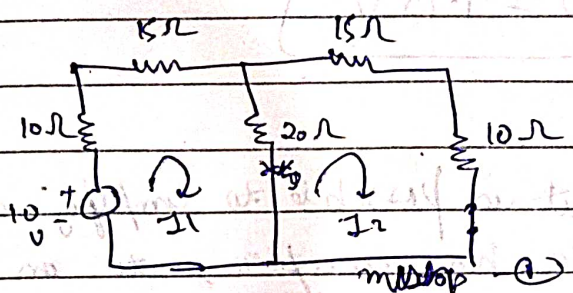 15Ω 15Ω
10Ω 20Ω 10Ω
10 V + -
I1 I2
①